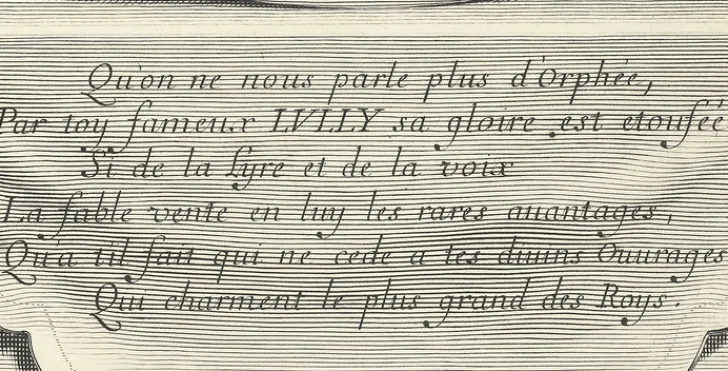 Qu'on ne nous parle plus d'Orphée,
Par toy fameux LVLLY sa gloire est etoufée
Si de la Lyre et de la voix
La fable vente en luy les rares auantages,
Qu'a t'il fait qui ne cede a tes diuins Ouurages
Qui charment le plus grand des Roys.